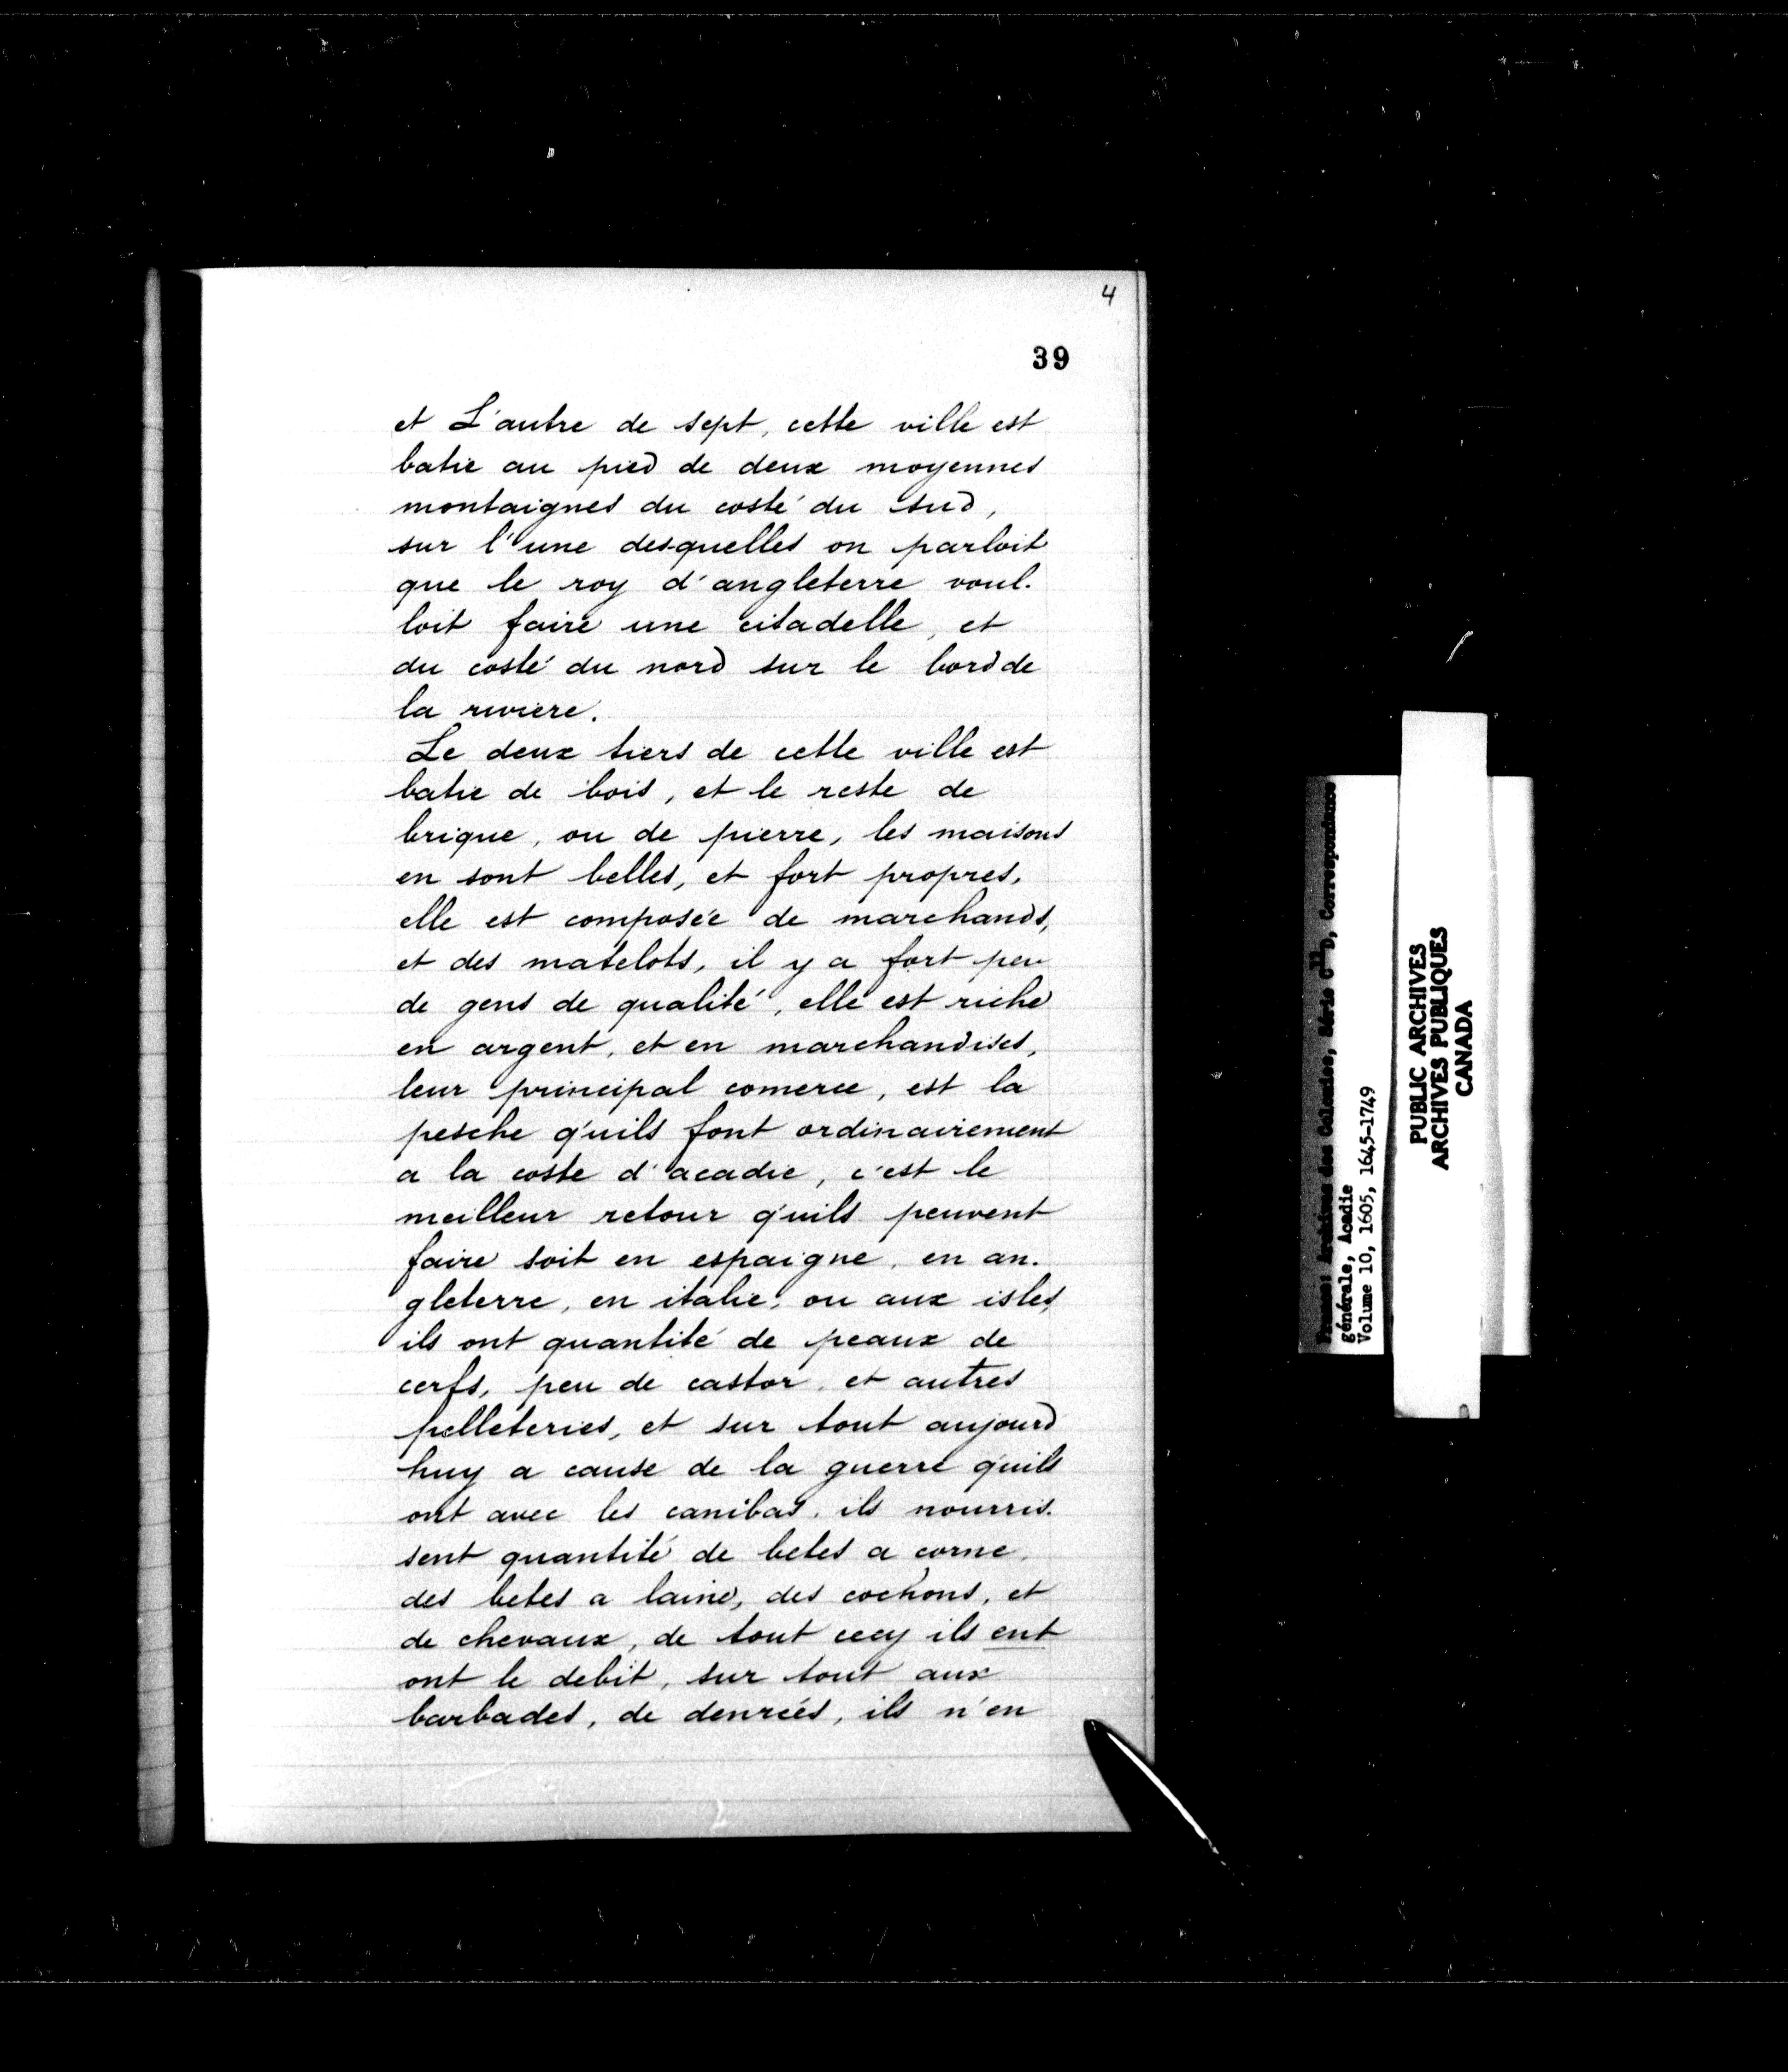 4
39
et L'autre de sept, cette ville est
batie au pied de deux moyennes
montaignes du costé du sud,
sur l'une desquelles on parloit
que le roy d'angleterre voul.
loit faire une citadelle, et
du costé du nord sur le bord de
la riviere.
Le deux tiers de cette ville est
batie de bois, et le reste de
brique, ou de pierre, les maisons
en sont belles, et fort propres,
elle est composée de marchands,
et des matelots, il y a fort peu
de gens de qualité, elle est riche
en argent, et en marchandises,
leur principal comerce, est la
pesche q'uils font ordinairement
a la coste d'acadie, c'est le
meilleur retour q'uils peuvent
faire soit en espaigne, en an.
gleterre, en italie, ou aux isles,
ils ont quantité de peaux de
cerfs, peu de castor, et autres
pelleteries, et sur tout aujourd
huy a cause de la guerre q'uils
ont avec les canibas, ils nourris.
sent quantité de betes a corne,
des betes a laine, des cochons, et
de chevaux, de tout cecy ils ent
ont le debit, sur tout aux
barbades, de denrées, ils n'en
France: Archives des Colonies, Série C11D, Correspondance
générale, Acadie
Volume 10, 1605, 1645-1749
PUBLIC ARCHIVES
ARCHIVES PUBLIQUES
CANADA